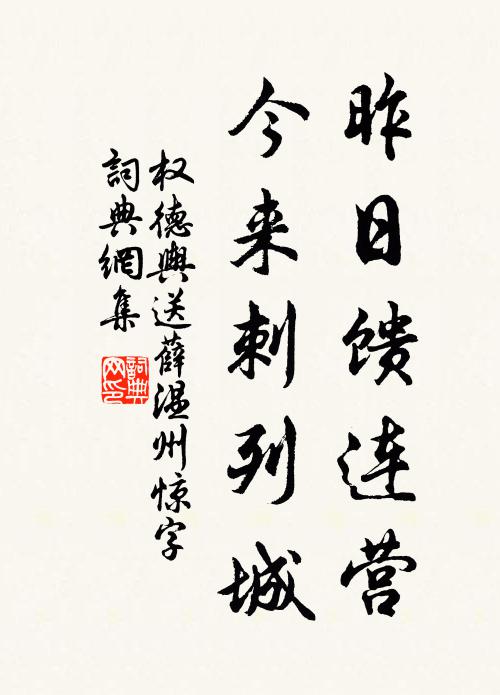 昨日馈连营
今来刺列城
权德舆送薛温州惊字
詞典網集
詞典网印